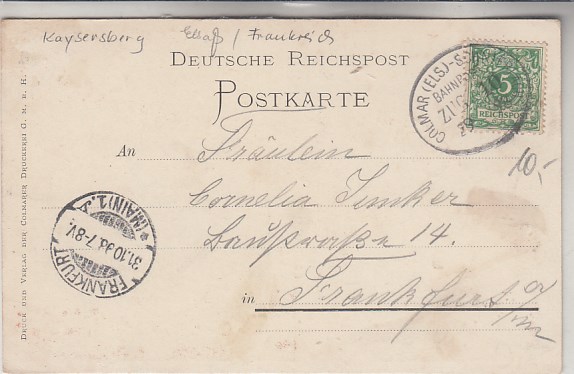 Kaysersberg Elsaß / Frankreich
DEUTSCHE REICHSPOST
POSTKARTE
5
REICHSPOST
COLMAR (ELS)-S
BAHNPOST
ZUG
10,-
An Fräulein
Cornelia Junker
Baustraße 14.
in Frankfurt a/m
FRANKFURT (MAIN) 1.
31.10.96 7-8V.
DRUCK UND VERLAG DER COLMARER DRUCKEREI G. M. B. H.